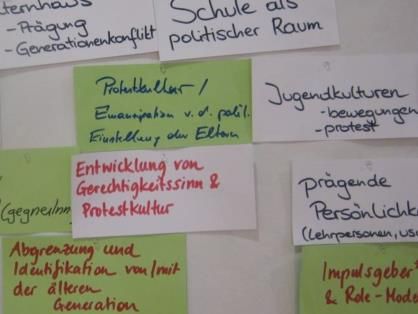 ternhaus
-Prägung
-Generationenkonflikt
Schule als
politischer Raum
Protestkultur /
Emanzipation v. d. polit.
Einstellung der Eltern
Jugendkulturen
-bewegungen
-protest
(gegner/inn
Entwicklung von
Gerechtigkeitssinn &
Protestkultur
prägende
Persönlichk
(Lehrpersonen, usw
Abgrenzung und
Identifikation von/mit
der älteren
Generation
Impulsgeber
& Role-Mode